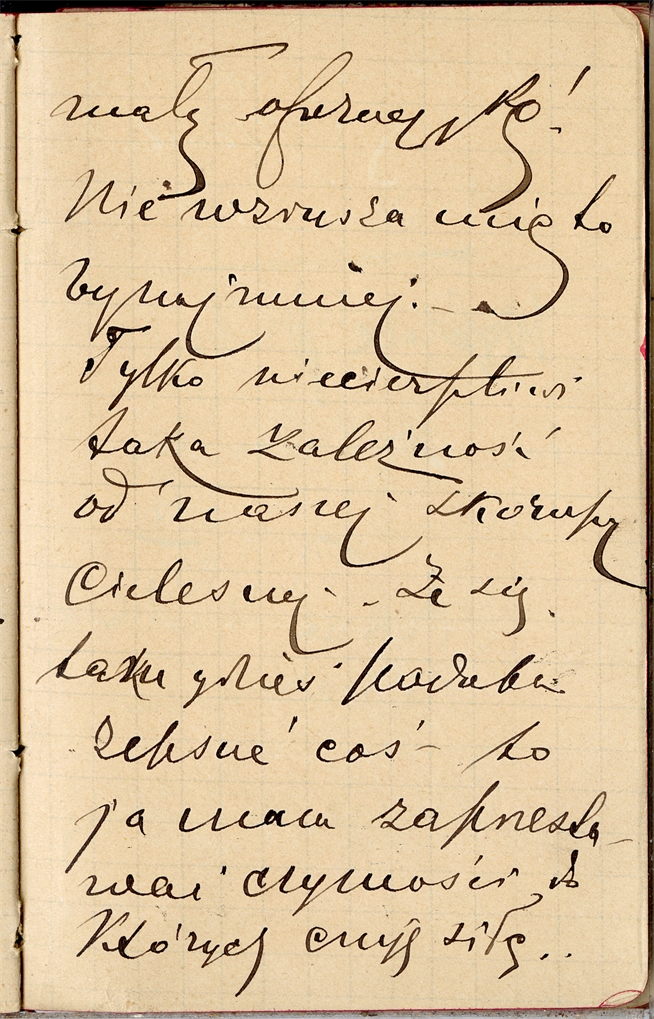 małą
Nie wzrusza mię to
bynajmniej. –
Tylko niecierpliwi
taka zależność
od naszej skorupy
cielesnej. – Że się
tam gdzieś podoba
zepsuć coś – to
ja mam zaprzesta-
wać czynności do
których czuję siłę..